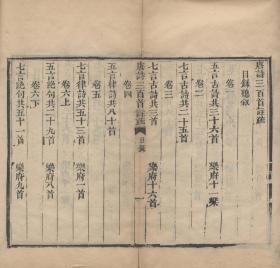 唐詩三百首註疏
目錄總敘
卷一
五言古詩共三十六首　樂府十一
卷二
七言古詩共二十五首
卷三
七言古詩共三首　樂府十六首
唐詩三百首註疏　目錄　一
卷四
五言律詩共八十首
卷五
七言律詩共五十三首　樂府一首
卷六上
五言絶句共二十九首　樂府八首
卷六下
七言絶句共五十一首　樂府九首